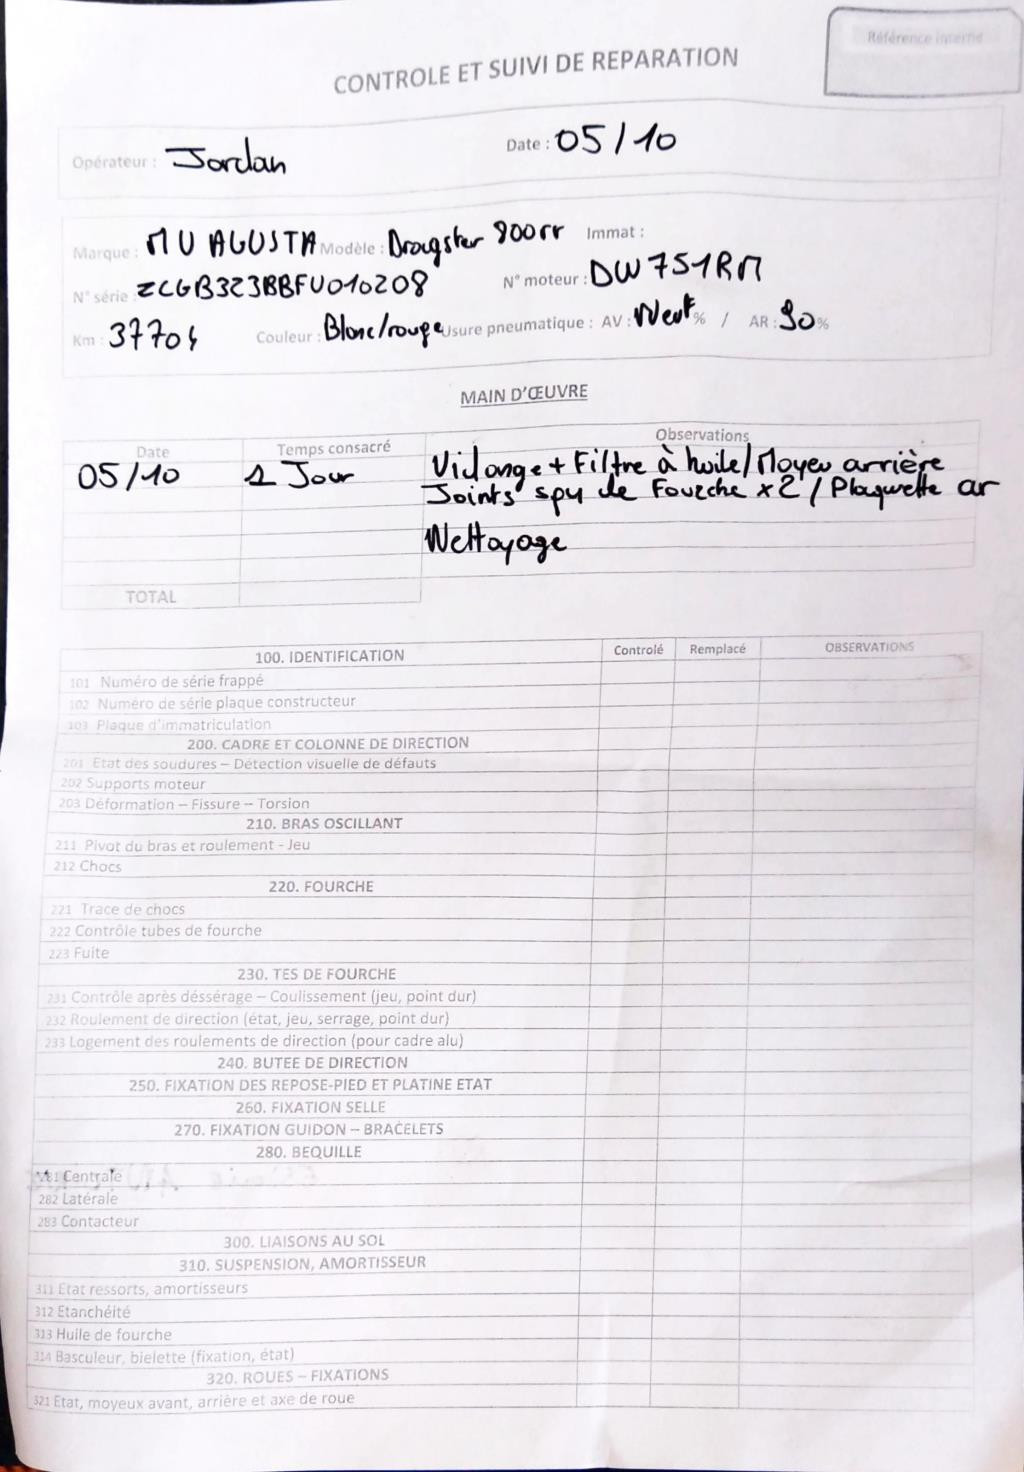 Référence interne
CONTROLE ET SUIVI DE REPARATION
Opérateur : Jordan Date : 05/10
Marque : MV AGUSTA Modèle : Dragster 800rr Immat :
N° série : ZCGB323BBFU010208 N° moteur : DW751RM
Km : 37704 Couleur : Blanc/rouge Usure pneumatique : AV : Neuf % / AR : 90 %
MAIN D'ŒUVRE
Date Temps consacré Observations
05/10 1 Jour Vidange + Filtre à huile/Moyeu arrière
Joints spy de Fourche x2 / Plaquette ar
Nettoyage
TOTAL
100. IDENTIFICATION Controlé Remplacé OBSERVATIONS
101 Numéro de série frappé
102 Numéro de série plaque constructeur
103 Plaque d'immatriculation
200. CADRE ET COLONNE DE DIRECTION
201 Etat des soudures – Détection visuelle de défauts
202 Supports moteur
203 Déformation – Fissure – Torsion
210. BRAS OSCILLANT
211 Pivot du bras et roulement - Jeu
212 Chocs
220. FOURCHE
221 Trace de chocs
222 Contrôle tubes de fourche
223 Fuite
230. TES DE FOURCHE
231 Contrôle après déssérage – Coulissement (jeu, point dur)
232 Roulement de direction (état, jeu, serrage, point dur)
233 Logement des roulements de direction (pour cadre alu)
240. BUTEE DE DIRECTION
250. FIXATION DES REPOSE-PIED ET PLATINE ETAT
260. FIXATION SELLE
270. FIXATION GUIDON – BRACELETS
280. BEQUILLE
281 Centrale
282 Latérale
283 Contacteur
300. LIAISONS AU SOL
310. SUSPENSION, AMORTISSEUR
311 Etat ressorts, amortisseurs
312 Etanchéité
313 Huile de fourche
314 Basculeur, bielette (fixation, état)
320. ROUES – FIXATIONS
321 Etat, moyeux avant, arrière et axe de roue